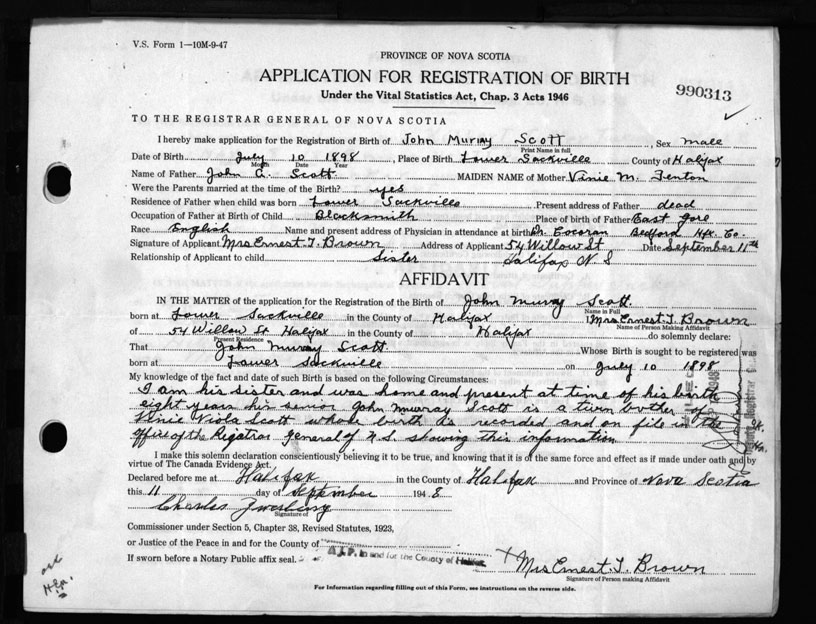 V.S. Form 1—10M-9-47
PROVINCE OF NOVA SCOTIA
APPLICATION FOR REGISTRATION OF BIRTH
Under the Vital Statistics Act, Chap. 3 Acts 1946
990313
TO THE REGISTRAR GENERAL OF NOVA SCOTIA
I hereby make application for the Registration of Birth of John Murray Scott, Sex male
Print Name in full
Date of Birth July 10 1898, Place of Birth Lower Sackville County of Halifax
Month Date Year
Name of Father John C. Scott MAIDEN NAME of Mother Vinie M. Fenton
Were the Parents married at the time of the Birth? yes
Residence of Father when child was born Lower Sackville Present address of Father dead
Occupation of Father at Birth of Child Blacksmith Place of birth of Father East Gore
Race English Name and present address of Physician in attendance at birth Dr. Cocoran Bedford Hfx. Co.
Signature of Applicant Mrs Ernest T. Brown Address of Applicant 54 Willow St Date September 11th
Relationship of Applicant to child Sister Halifax N.S
AFFIDAVIT
IN THE MATTER of the application for the Registration of the Birth of John Murray Scott
Name in Full
born at Lower Sackville in the County of Halifax I Mrs Ernest T. Brown
Name of Person Making Affidavit
of 54 Willow St Halifax in the County of Halifax do solemnly declare:
Present Residence
That John Murray Scott Whose Birth is sought to be registered was
born at Lower Sackville on July 10 1898
My knowledge of the fact and date of such Birth is based on the following Circumstances:
I am his sister and was home and present at time of his birth
eight years his senior John Murray Scott is a twin brother of
Vinie Viola Scott whose birth is recorded and on file in the
office of the Registrar General of N.S. showing this information
I make this solemn declaration conscientiously believing it to be true, and knowing that it is of the same force and effect as if made under oath and by
virtue of The Canada Evidence Act.
Declared before me at Halifax in the County of Halifax and Province of Nova Scotia
this 11 day of September 1948
Charles
Signature of
Commissioner under Section 5, Chapter 38, Revised Statutes, 1923,
or Justice of the Peace in and for the County of
A J.P. in and for the County of Halifax
If sworn before a Notary Public affix seal.
X Mrs Ernest T. Brown
Signature of Person making Affidavit
For Information regarding filling out of this Form, see instructions on the reverse side.